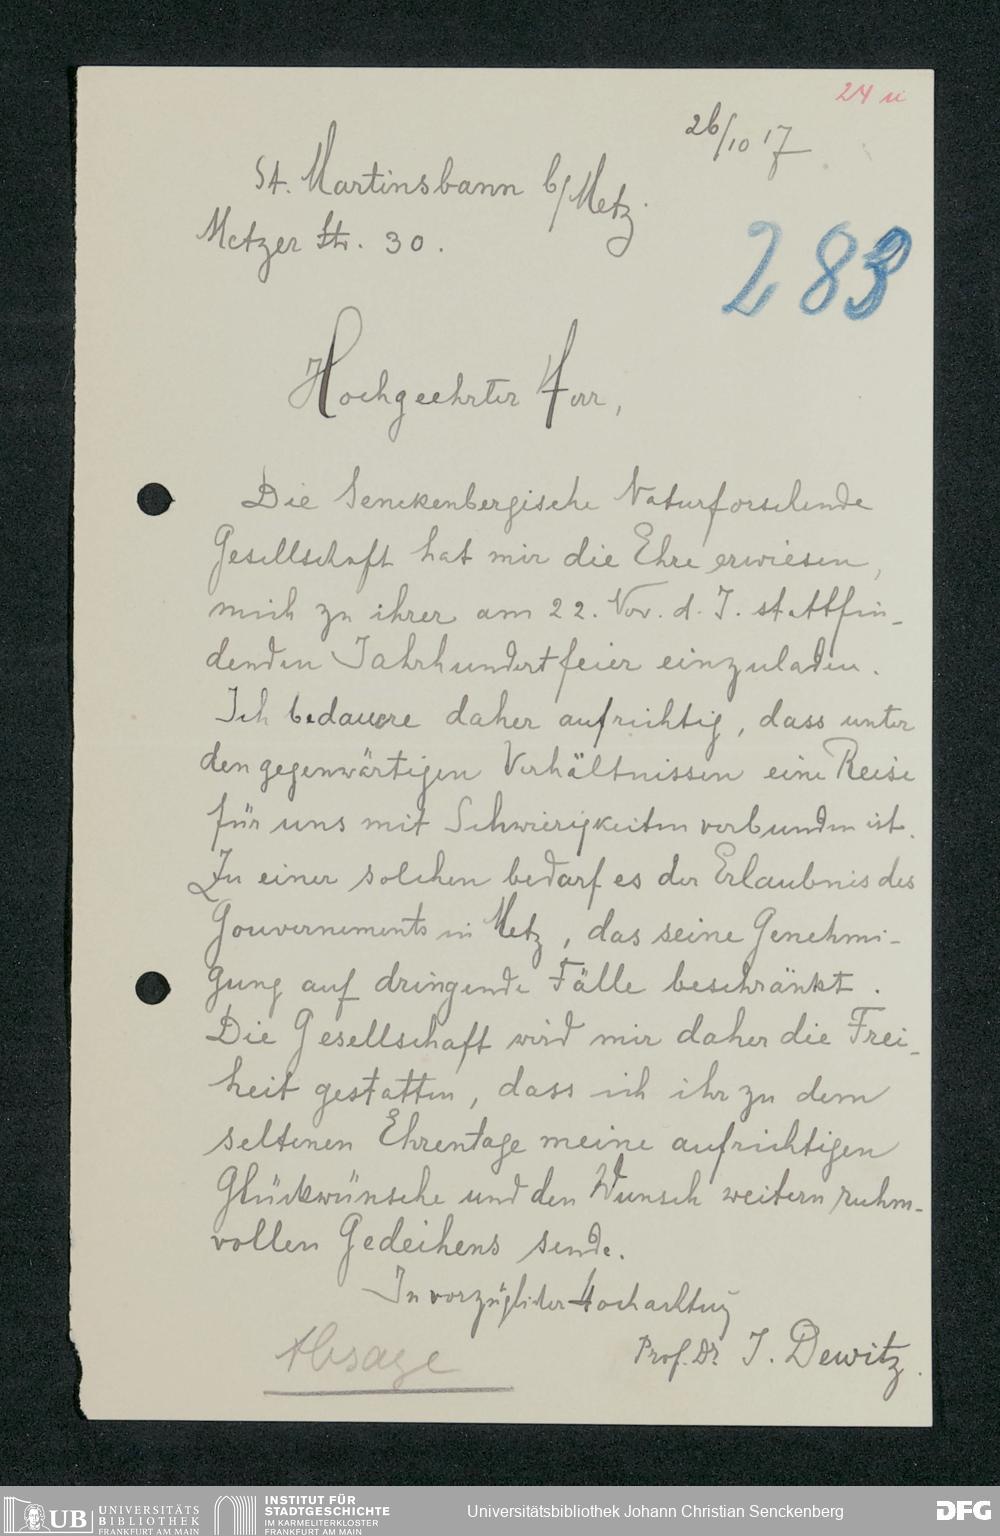 24 u
26/10 17
St. Martinsbann b/Metz.
Metzer Str. 30.
283
Hochgeehrter Herr,
Die Senckenbergische Naturforschende
Gesellschaft hat mir die Ehre erwiesen,
mich zu ihrer am 22. Nov. d. J. stattfin-
denden Jahrhundertfeier einzuladen.
Ich bedauere daher aufrichtig, dass unter
den gegenwärtigen Verhältnissen eine Reise
für uns mit Schwierigkeiten verbunden ist.
Zu einer solchen bedarf es der Erlaubnis des
Gouvernements in Metz, das seine Genehmi-
gung auf dringende Fälle beschränkt.
Die Gesellschaft wird mir daher die Frei-
heit gestatten, dass ich ihr zu dem
seltenen Ehrentage meine aufrichtigen
Glückwünsche und den Wunsch weitern ruhm-
vollen Gedeihens sende.
In vorzüglicher Hochachtung
Prof. Dr J. Dewitz.
Absage
UB UNIVERSITÄTS
BIBLIOTHEK
FRANKFURT AM MAIN
INSTITUT FÜR
STADTGESCHICHTE
IM KARMELITERKLOSTER
FRANKFURT AM MAIN
Universitätsbibliothek Johann Christian Senckenberg
DFG